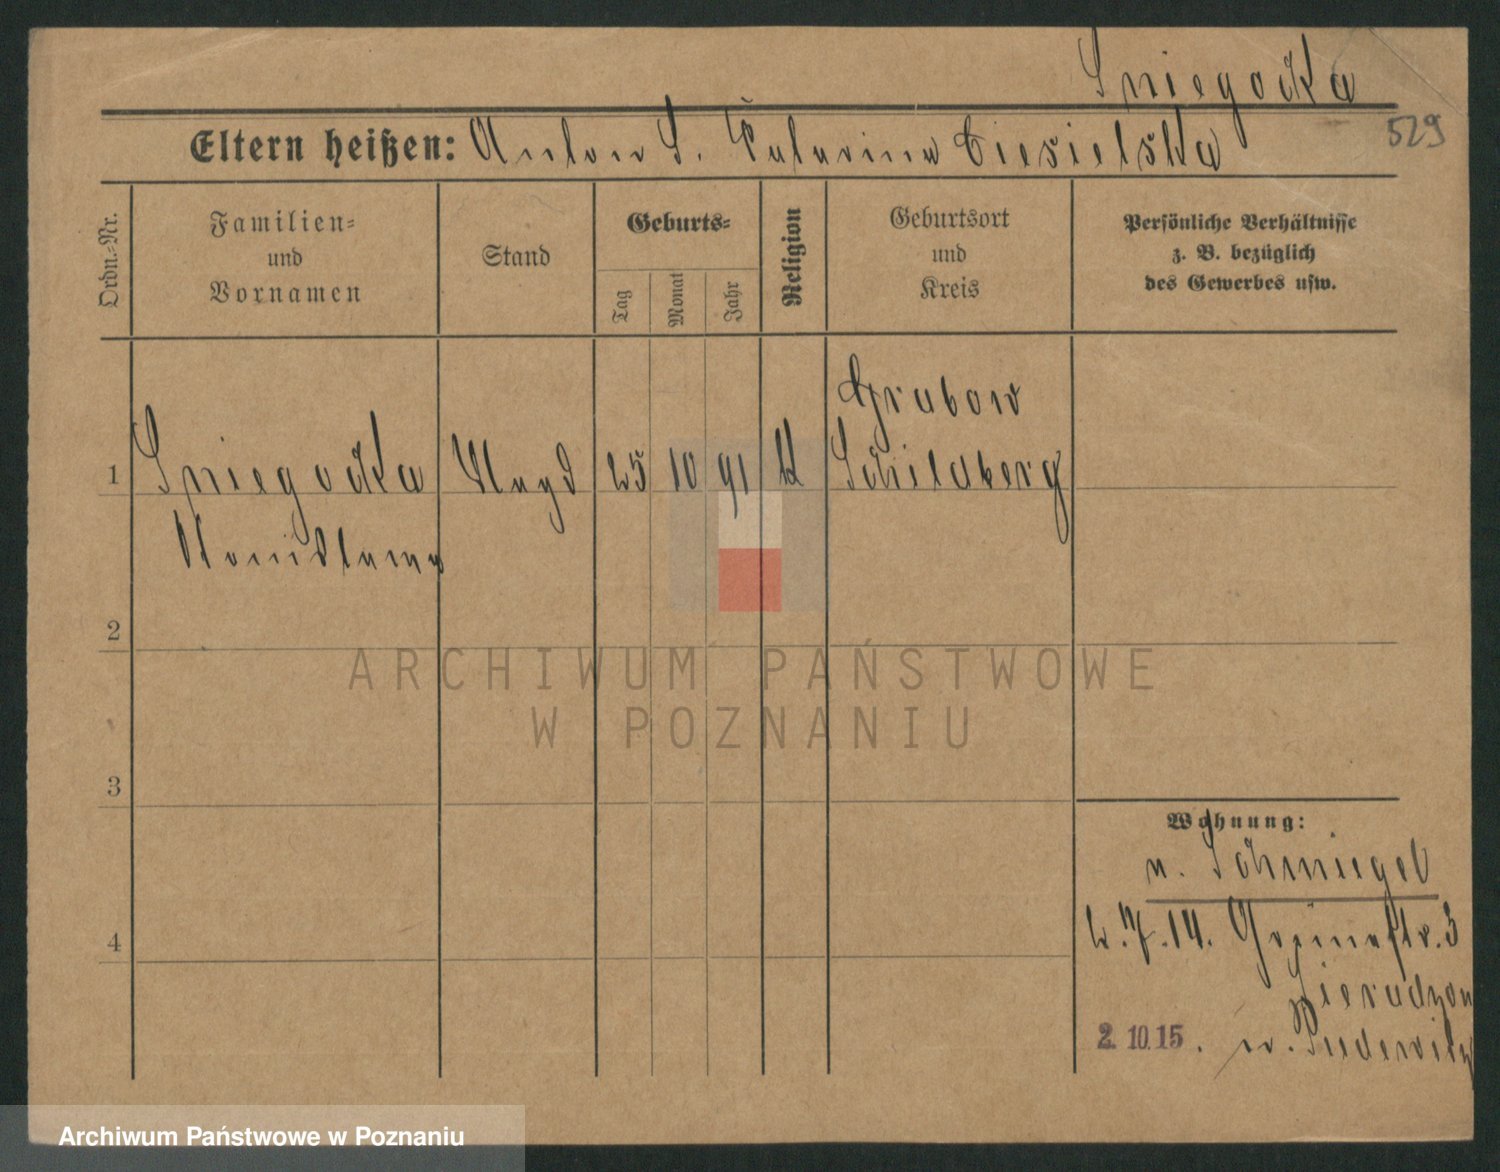 Sniegocka
529
Eltern heißen: Anton S. Catarina Ciesielska
Ordn.-Nr.
Familien-
und
Vornamen
Stand
Geburts-
Tag
Monat
Jahr
Religion
Geburtsort
und
Kreis
Persönliche Verhältnisse
z. B. bezüglich
des Gewerbes usw.
Grabow
1 Sniegocka Magd 25 10 91 k Schildberg
2
3
4
ARCHIWUM PAŃSTWOWE
W POZNANIU
Wohnung:
n. Schmiegel
2.7.14.
3
Sieradzon
2.10.15. n. Pudewitz
Archiwum Państwowe w Poznaniu